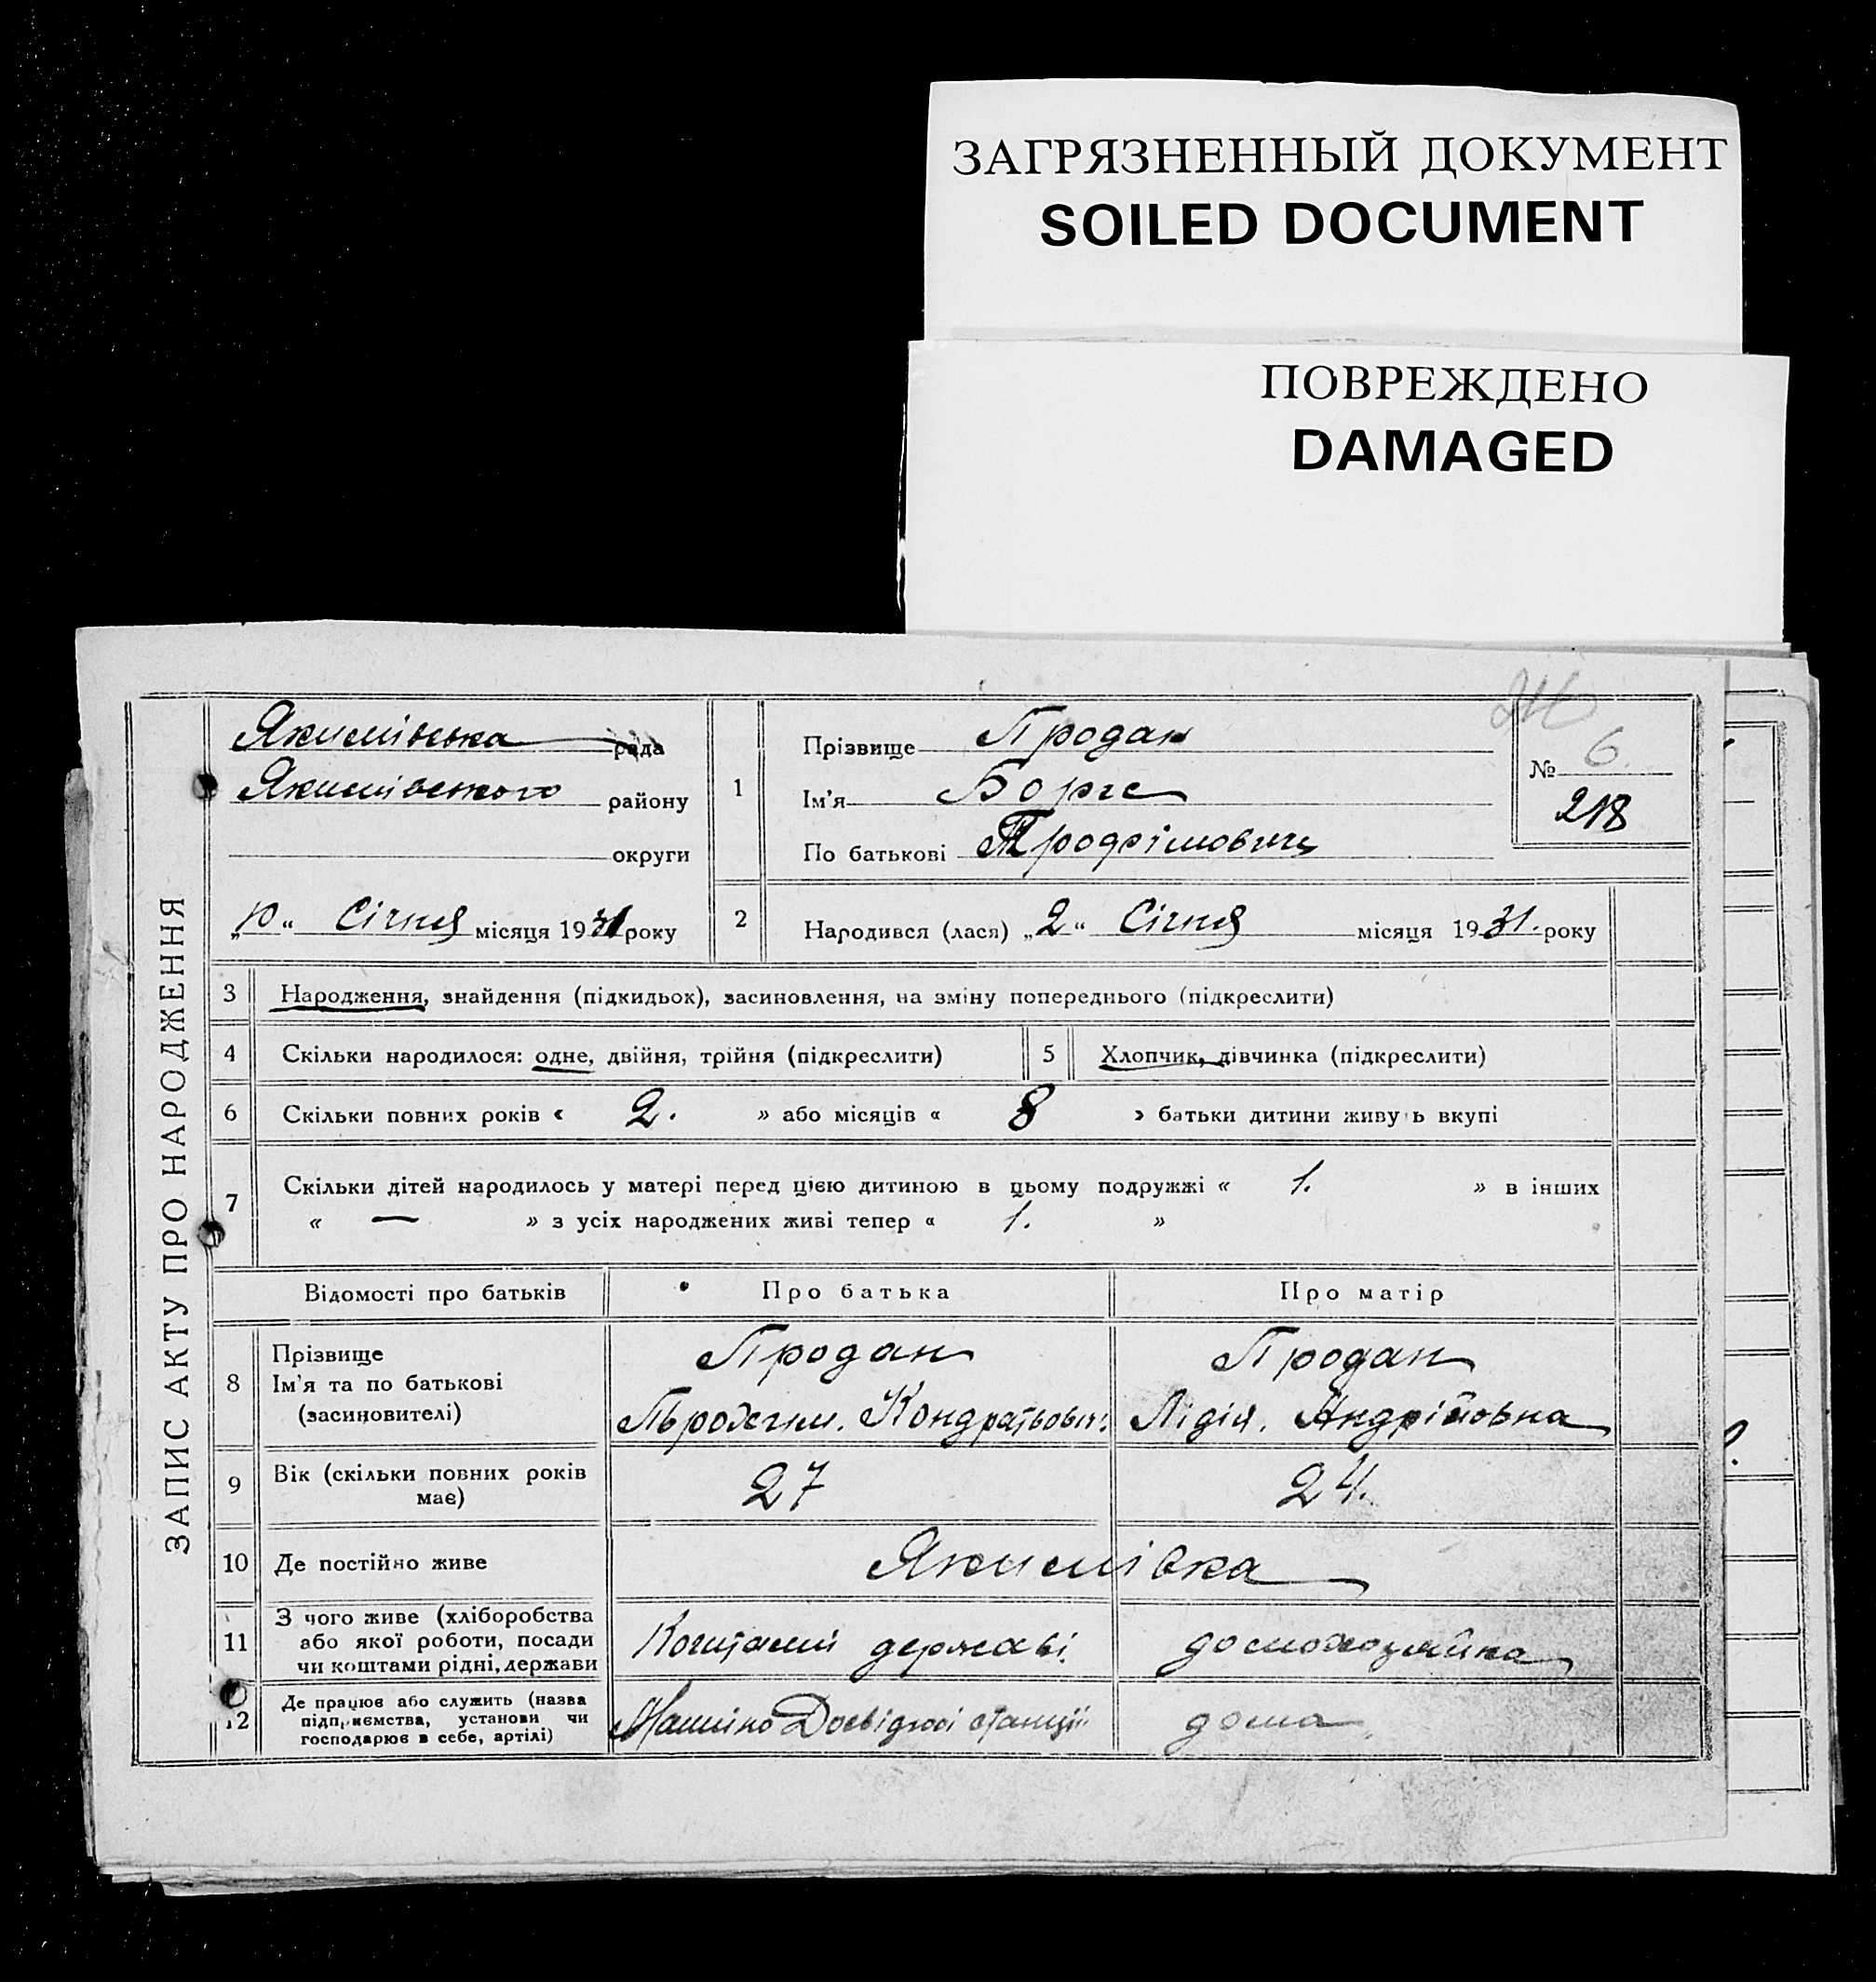 ЗАГРЯЗНЕННЫЙ ДОКУМЕНТ
SOILED DOCUMENT
ПОВРЕЖДЕНО
DAMAGED
ЗАПИС АКТУ ПРО НАРОДЖЕННЯ
Якимівська рада
Якимівського району
округи
„10“ Січня місяця 1931 року
1
Прізвище Продан
Ім'я Борис
По батькові Трофімович
№ 6.
218
2
Народився (лася) „2“ Січня місяця 1931. року
3 Народження, знайдення (підкидьок), засиновлення, на зміну попереднього (підкреслити)
4 Скільки народилося: одне, двійня, трійня (підкреслити) 5 Хлопчик, дівчинка (підкреслити)
6 Скільки повних років « 2. » або місяців « 8 » батьки дитини живуть вкупі
7 Скільки дітей народилось у матері перед цією дитиною в цьому подружжі « 1. » в інших
« — » з усіх народжених живі тепер « 1. »
Відомості про батьків Про батька Про матір
8 Прізвище Продан Продан
Ім'я та по батькові Кондратьович Лідія. Андріївна
(засиновителі)
9 Вік (скільки повних років має) 27 24.
10 Де постійно живе Якимівка
11 З чого живе (хліборобства
або якої роботи, посади Коштами держави домохозяйка
чи коштами рідні, держави
12 Де працює або служить (назва
підприємства, установи чи Машино Досвідної станції дома
господарює в себе, артілі)